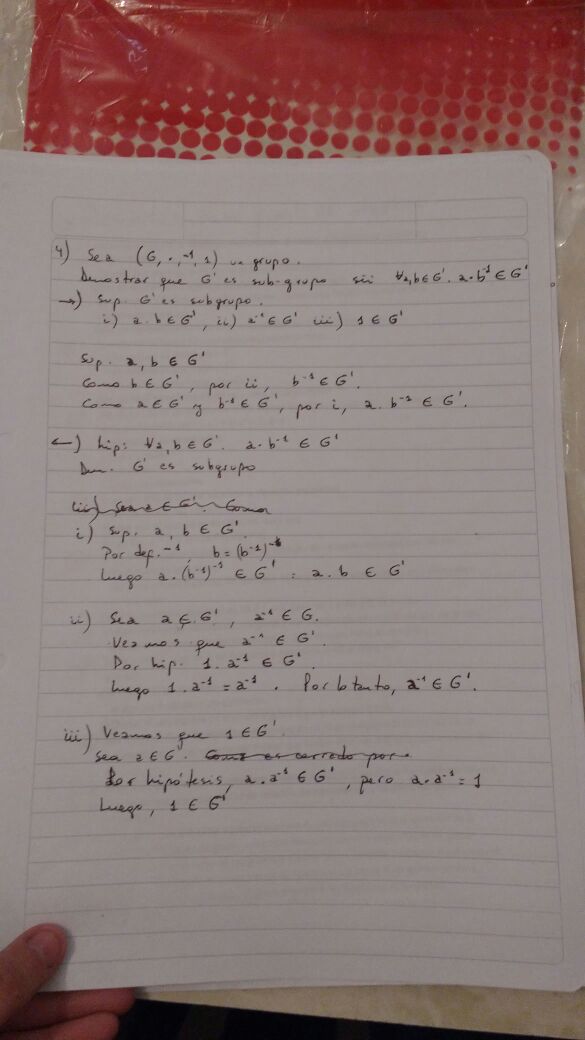 4) Sea (G, ·, ⁻¹, 1) un grupo.
Demostrar que G' es sub-grupo sii ∀a,b∈G'. a·b⁻¹ ∈ G'
→) Sup. G' es subgrupo.
i) a·b ∈ G', ii) a⁻¹ ∈ G' iii) 1 ∈ G'
Sup. a, b ∈ G'
Como b ∈ G', por ii, b⁻¹ ∈ G'.
Como a ∈ G' y b⁻¹ ∈ G', por i, a·b⁻¹ ∈ G'.
←) hip: ∀a,b ∈ G'. a·b⁻¹ ∈ G'
Dem. G' es subgrupo
iii) Sea a ∈ G'. Como
i) Sup. a, b ∈ G'.
Por def. ⁻¹, b = (b⁻¹)⁻¹
Luego a·(b⁻¹)⁻¹ ∈ G' = a·b ∈ G'
ii) Sea a ∈ G', a⁻¹ ∈ G.
Veamos que a⁻¹ ∈ G'.
Por hip. 1·a⁻¹ ∈ G'.
Luego 1·a⁻¹ = a⁻¹. Por lo tanto, a⁻¹ ∈ G'.
iii) Veamos que 1 ∈ G'.
Sea a ∈ G'. Como es cerrado por
Por hipótesis, a·a⁻¹ ∈ G', pero a·a⁻¹ = 1
Luego, 1 ∈ G'